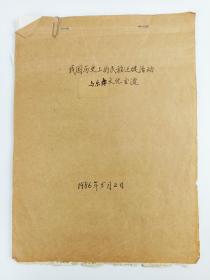 我国历史上的民族迁徙活动
与东西文化交流
1986年5月2日